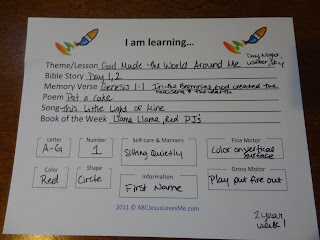 I am learning...
Day, Night, water, sky
Theme/Lesson God Made the World Around Me
Bible Story Day 1, 2
Memory Verse Genesis 1:1 In the Beginning God created the heavens & the earth
Poem Pat a cake
Song This Little Light of Mine
Book of the Week Llama, Llama, Red PJs
Letter
A-G
Number
1
Self-care & Manners
Sitting Quietly
Fine Motor
Color on vertical surface
Color
Red
Shape
Circle
Information
First Name
Gross Motor
Play put fire out
2011 © ABCJesusLovesMe.com
2 year
week 1